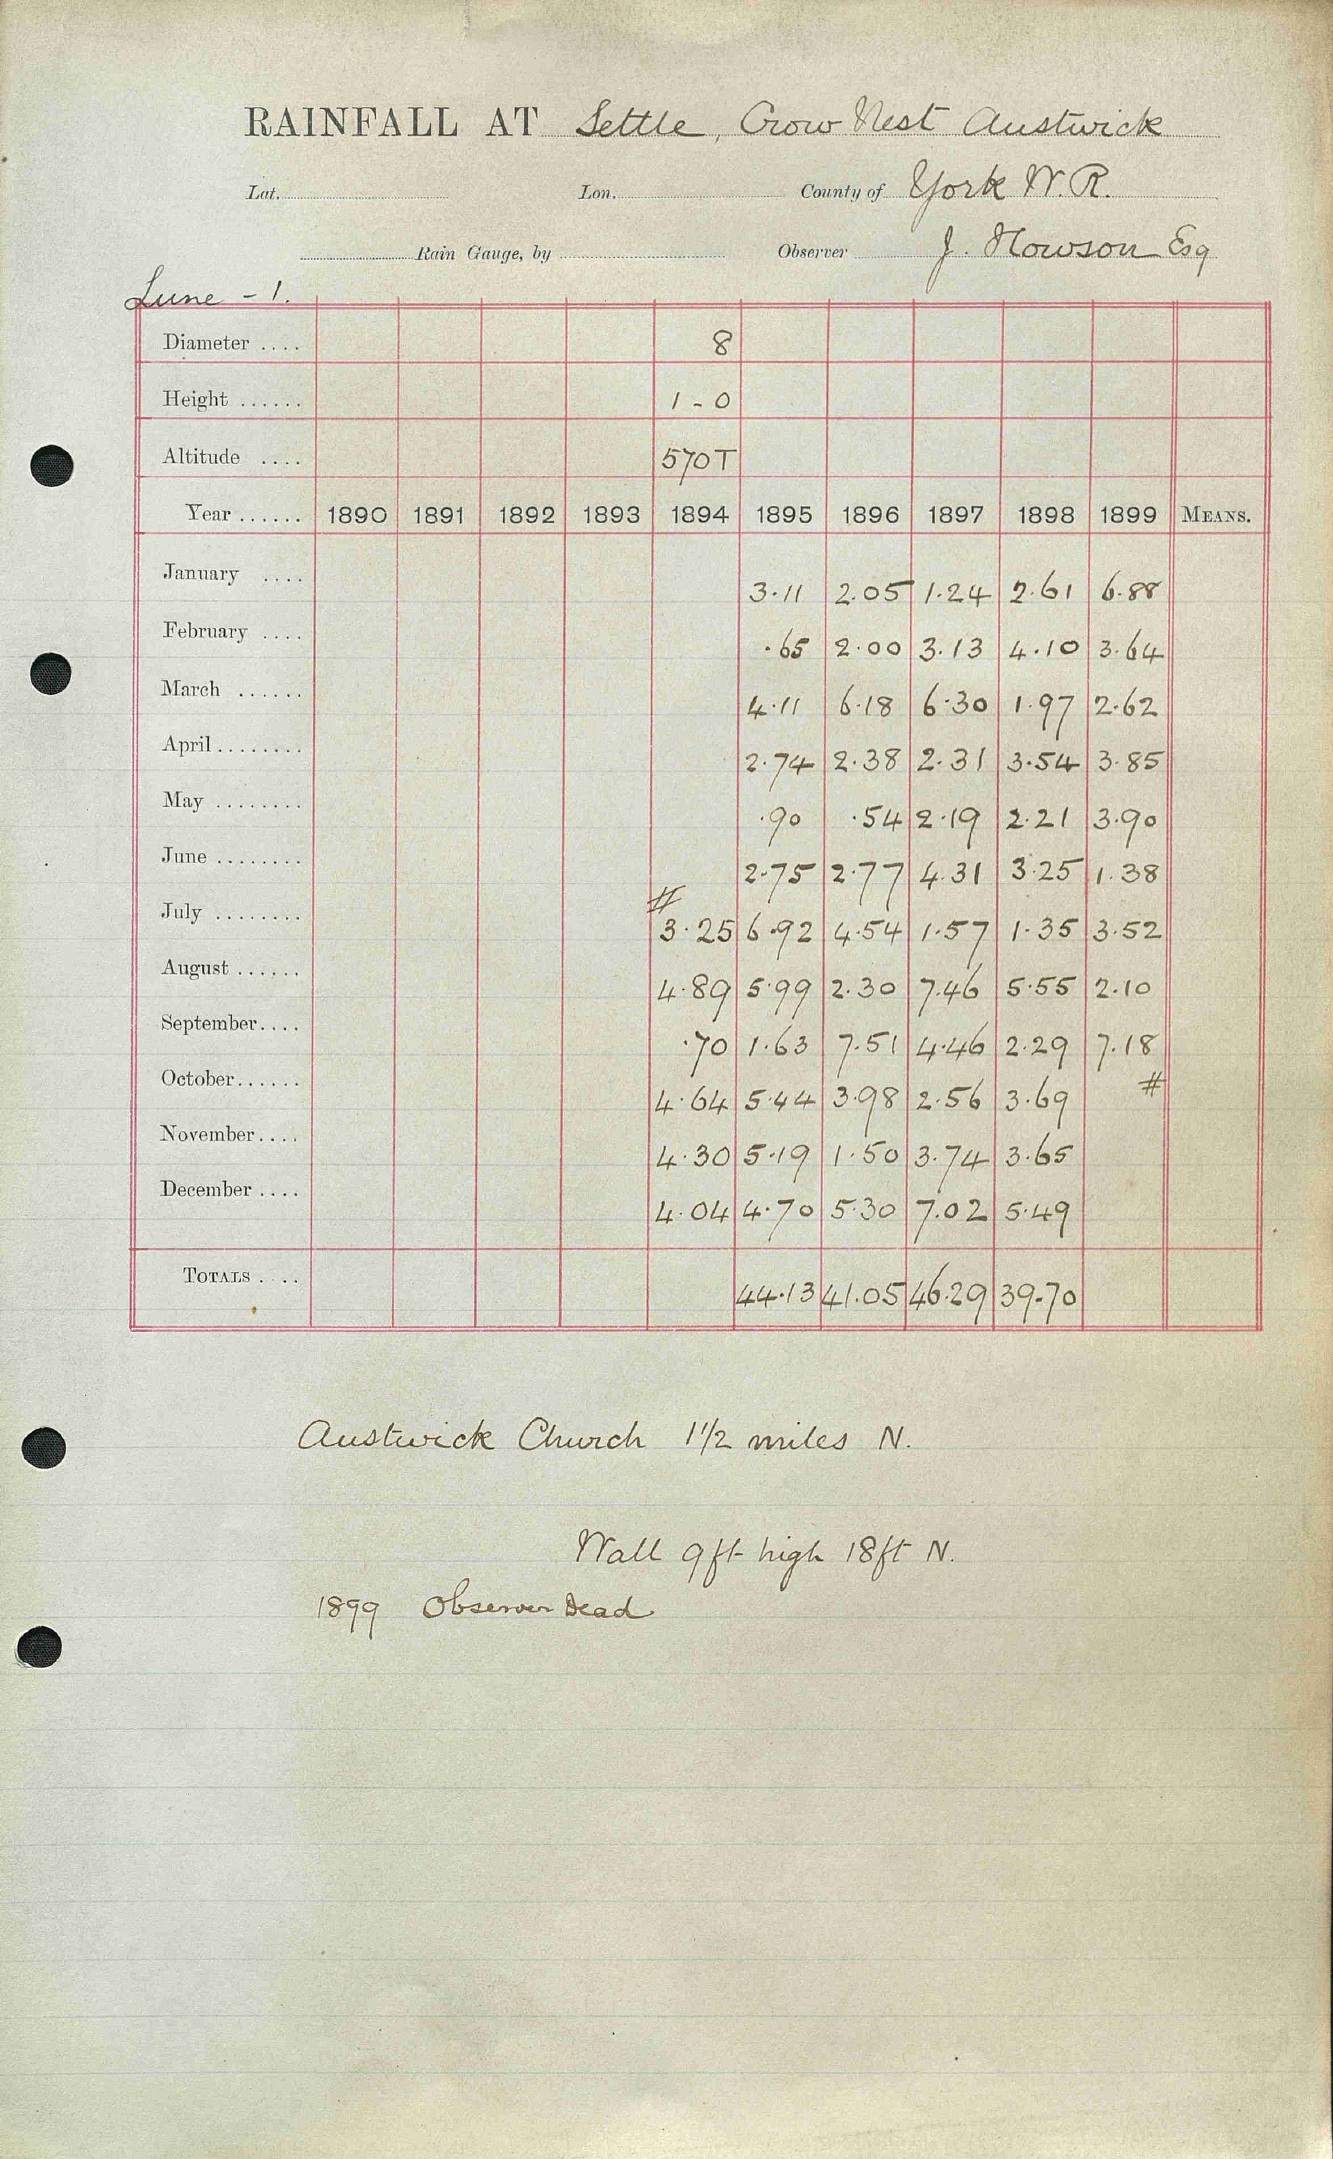 RAINFALL AT Settle, Crow Nest Austwick
Lat. Lon. County of York W.R.
Rain Gauge, by Observer J. Howson Esq
Lune - 1.
Diameter .... 8
Height ...... 1-0
Altitude .... 570T
Year ...... 1890 1891 1892 1893 1894 1895 1896 1897 1898 1899 MEANS.
January .... 3.11 2.05 1.24 2.61 6.88
February .... .65 2.00 3.13 4.10 3.64
March ...... 4.11 6.18 6.30 1.97 2.62
April ........ 2.74 2.38 2.31 3.54 3.85
May ........ .90 .54 2.19 2.21 3.90
June ........ 2.75 2.77 4.31 3.25 1.38
#
July ........ 3.25 6.92 4.54 1.57 1.35 3.52
August ...... 4.89 5.99 2.30 7.46 5.55 2.10
September.... .70 1.63 7.51 4.46 2.29 7.18
October...... 4.64 5.44 3.98 2.56 3.69 #
November.... 4.30 5.19 1.50 3.74 3.65
December .... 4.04 4.70 5.30 7.02 5.49
TOTALS .... 44.13 41.05 46.29 39.70
Austwick Church 1½ miles N.
Wall 9ft high 18ft N.
1899 Observer Dead